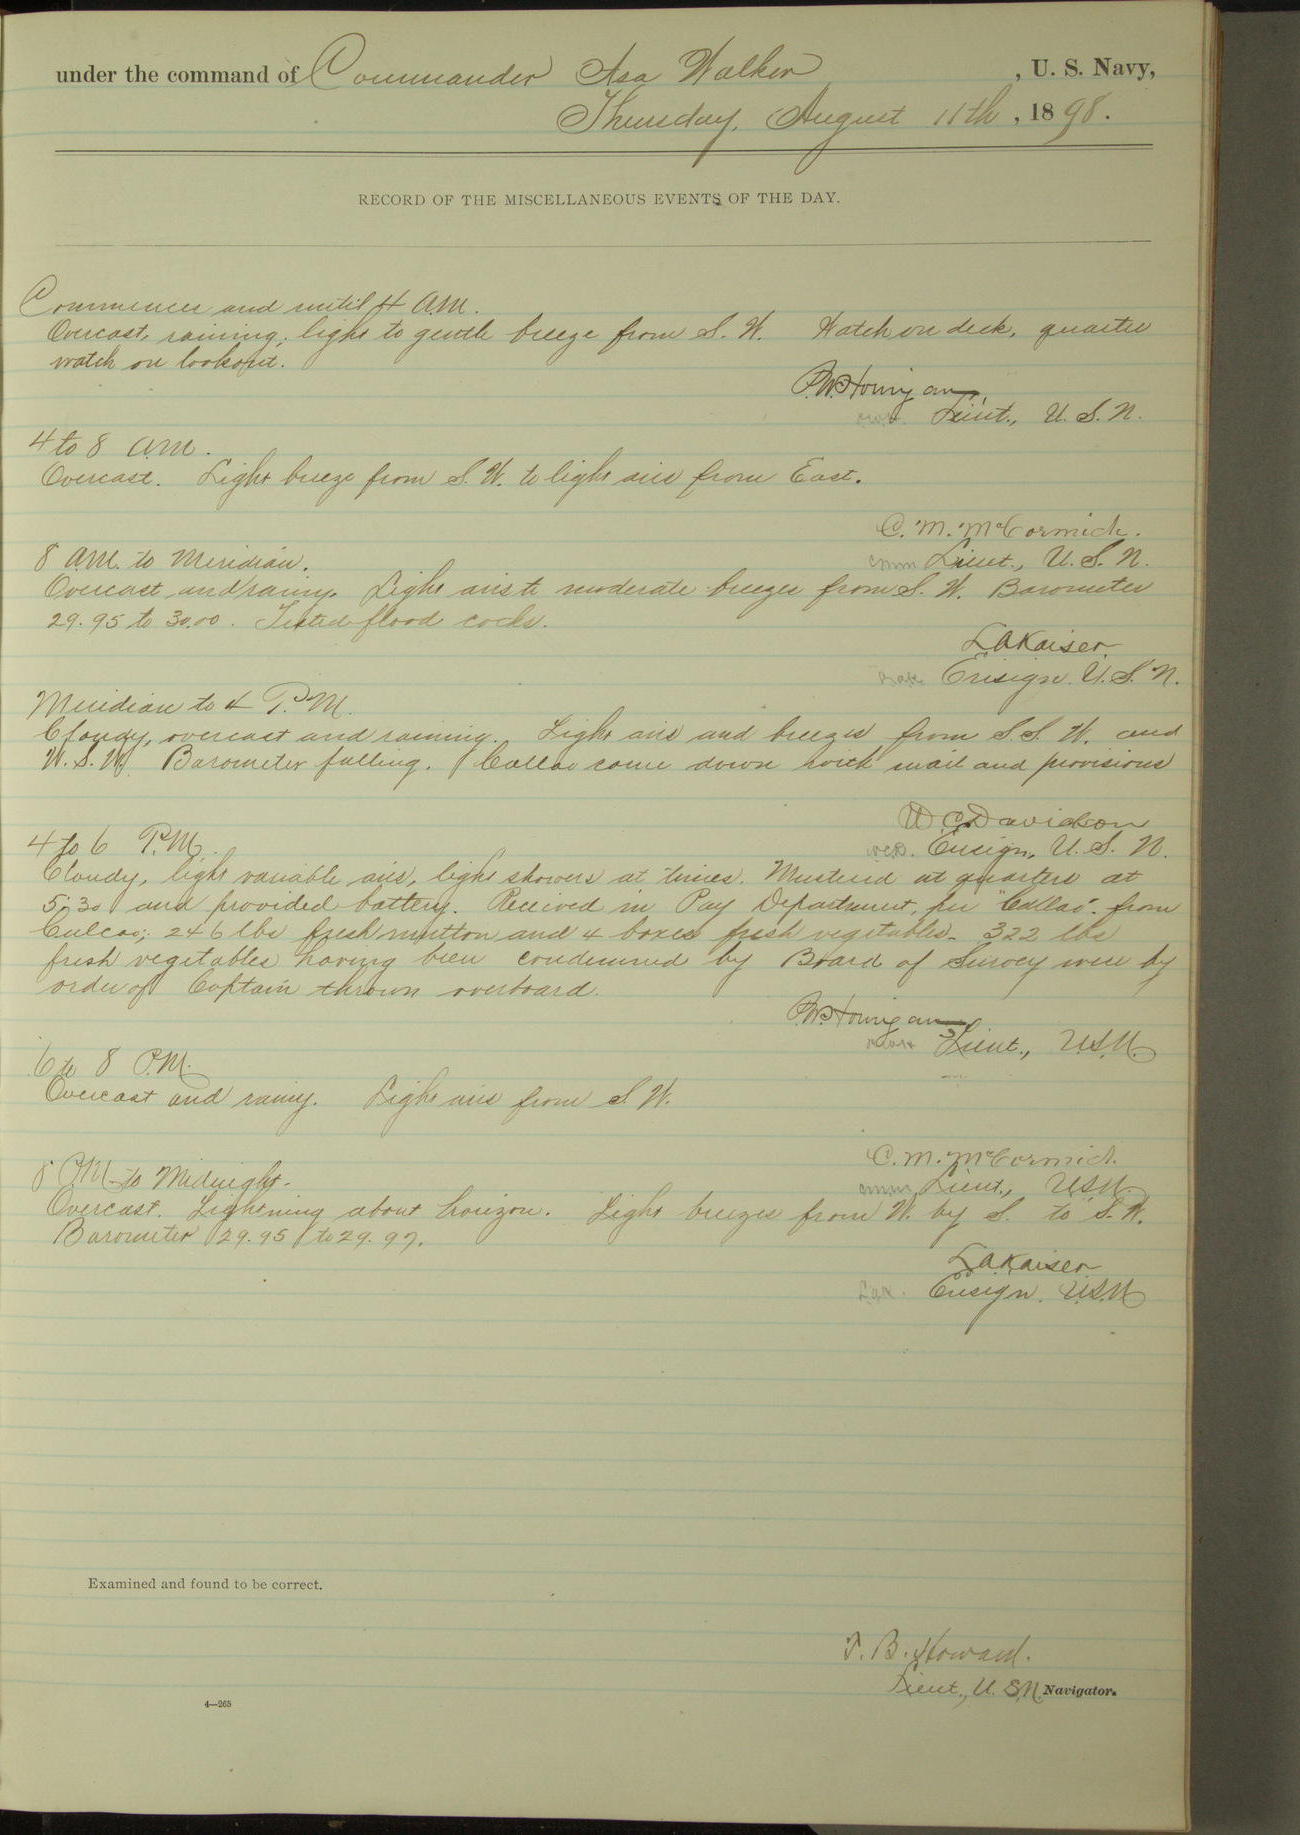 under the command of Commander Asa Walker, U. S. Navy,
Thursday, August 11th, 1898.
RECORD OF THE MISCELLANEOUS EVENTS OF THE DAY.
Commences and until 4 A.M.
Overcast, raining, light to gentle breeze from S. W. Watch on deck, quarter
watch on lookout.
P.W. Hourigan,
Lieut., U. S. N.
4 to 8 A.M.
Overcast. Light breeze from S. W. to light airs from East.
C. M. McCormick.
8 A.M. to Meridian.
cmm Lieut., U. S. N.
Overcast and rainy. Light airs to moderate breezes from S. W. Barometer
29.95 to 30.00. Tested flood cocks.
L A Kaiser
Ensign. U. S. N.
Meridian to 4 P.M.
Cloudy, overcast and raining. Light airs and breezes from S.S. W. and
W. S. W. Barometer falling. Callao came down with mail and provisions
W C Davidson
4 to 6 P.M.
Ensign, U. S. N.
Cloudy, light variable airs, light showers at times. Mustered at quarters at
5:30 and provided battery. Received in Pay Department, per "Callao" from
246 lbs fresh mutton and 4 boxes fresh vegetables. 322 lbs
fresh vegetables having been condemned by Board of Survey were by
order of Captain thrown overboard.
P.W. Hourigan
Lieut., U.S.N.
6 to 8 P.M.
Overcast and rainy. Light airs from S. W.
C. M. McCormick
8 P.M. to Midnight.
cmm Lieut., U.S.N.
Overcast. Lightning about horizon. Light breezes from W. by S. to S. W.
Barometer 29.95 to 29.97.
L A Kaiser
Lak. Ensign. U.S.N.
Examined and found to be correct.
T. B. Howard.
Lieut., U. S. N. Navigator.
4—265